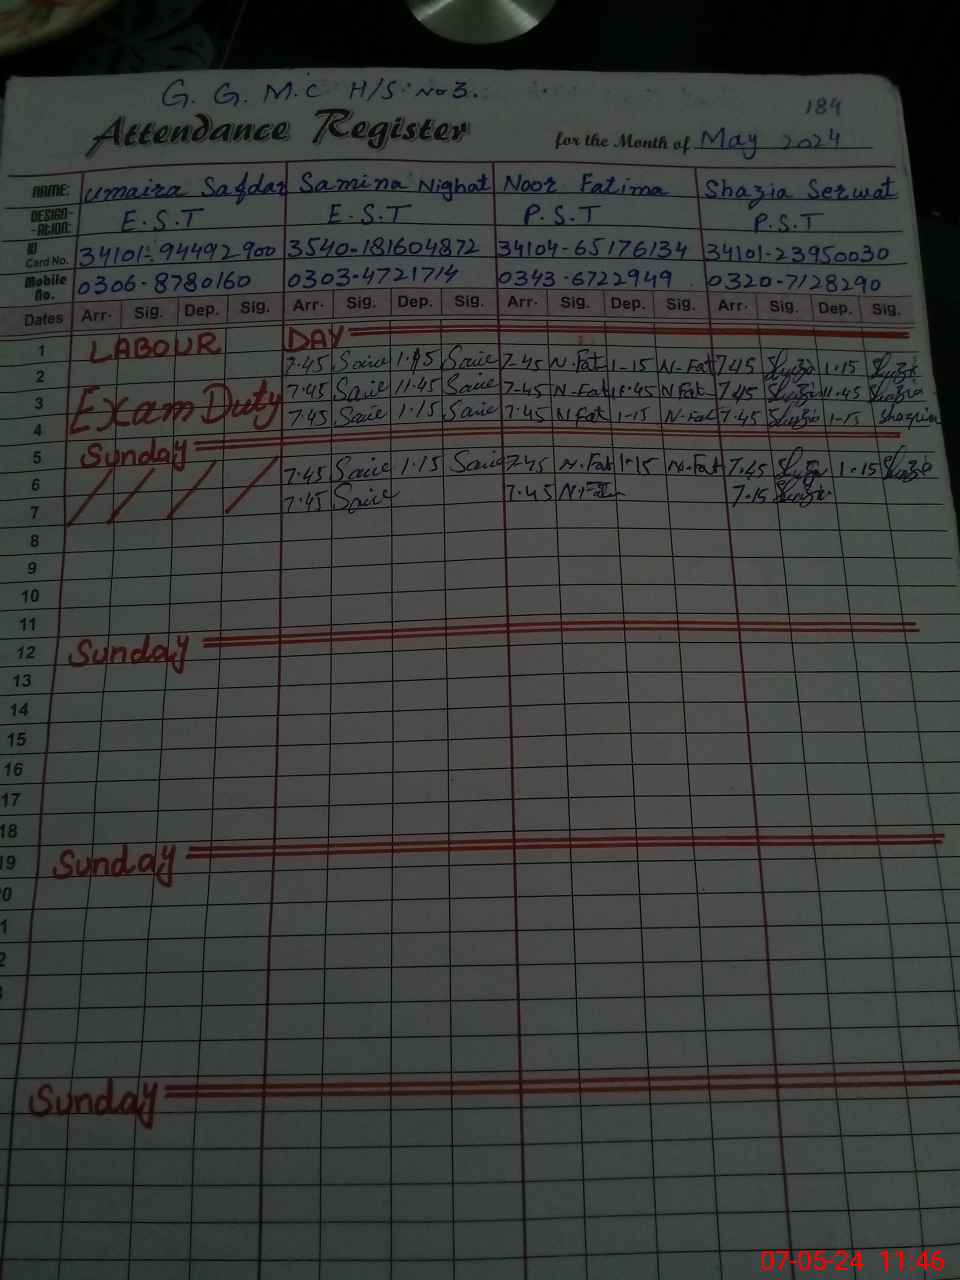 G. G. M.C H/S No 3.
184
Attendance Register for the Month of May 2024
NAME: umaira Safdar Samina Nighat Noor Fatima Shazia Serwat
DESIGN-ATION: E.S.T E.S.T P.S.T P.S.T
ID Card No. 34101-94492900 3540-181604872 34104-65176134 34101-23950030
Mobile No. 0306-8780160 0303-4721714 0343-6722949 0320-7128290
Dates Arr. Sig. Dep. Sig. Arr. Sig. Dep. Sig. Arr. Sig. Dep. Sig. Arr. Sig. Dep. Sig.
1 LABOUR DAY
2 7.45 1.15 7-45 N-Fat 1-15 N-Fat 7.45 1.15
3 Exam Duty 7.45 11.45 7-45 N-Fat 11.45 N Fat 7.45 11.45
4 7.45 1.15 7.45 N Fat 1-15 N-Fat 7.45 1-15
5 Sunday
6 7.45 1.15 7-45 N-Fat 1-15 N-Fat 7.45 1-15
7 7.45 7.45 7.15
8
9
10
11
12 Sunday
13
14
15
16
17
18
19 Sunday
20
1
2
3
Sunday
07-05-24 11:46